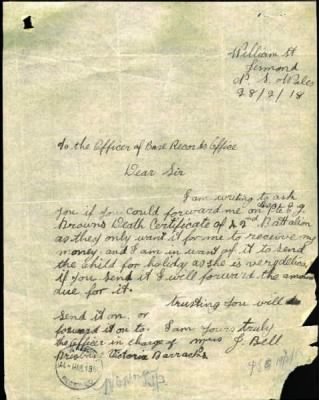 William St
N. S. Wales
28/2/18
To the Officer of Base Records Office
Dear Sir
I am writing to ask
you if you could forward me on
Browns Death Certificate of 2nd Battalion
as they only want it for me to receive my
money. and I am in want of it to send
the child for holiday as she is very delicate
if you send it I will forward the amount
due for it.
trusting you will
send it on. or
forward it on to. I am yours truly
the Officer in charge of Mrs J. Bell
Brisbane Victoria Barracks